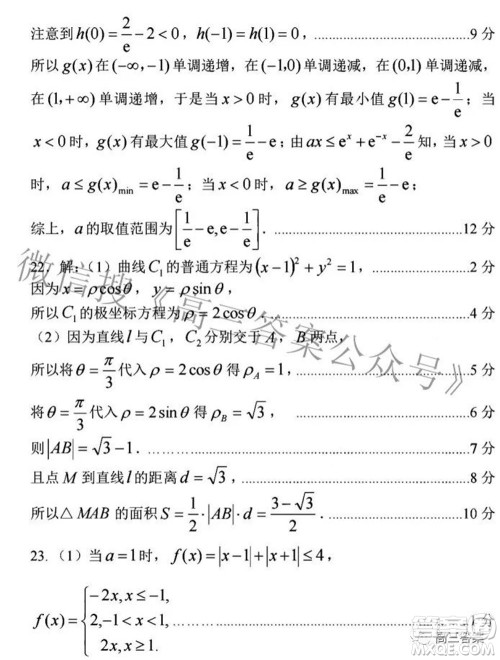 注意到h(0)=2/e-2<0，h(-1)=h(1)=0，……………………9 分
所以 g(x)在(-∞,-1)单调递增，在(-1,0)单调递减，在(0,1)单调递减，
在(1,+∞)单调递增，于是当 x>0时，g(x)有最小值g(1)=e-1/e；当
x<0时，g(x)有最大值g(-1)=1/e-e；由ax≤e^x+e^{-x}-2/e知，当x>0
时，a≤g(x)_min=e-1/e；当x<0时，a≥g(x)_max=1/e-e；
综上，a的取值范围为[1/e-e,e-1/e]．……………………12 分
22．解：（1）曲线C₁的普通方程为(x-1)²+y²=1，……………………2 分
因为x=ρcosθ，y=ρsinθ，
所以C₁的极坐标方程为ρ=2cosθ．……………………4 分
（2）因为直线l与C₁，C₂分别交于A，B两点，
所以将θ=π/3代入ρ=2cosθ得ρ_A=1，……………………5 分
将θ=π/3代入ρ=2sinθ得ρ_B=√3，……………………6 分
则|AB|=√3-1．……………………7 分
且点 M 到直线l的距离d=√3，……………………8 分
所以△MAB 的面积S=1/2·|AB|·d=(3-√3)/2．……………………10 分
23.（1）当a=1时，f(x)=|x-1|+|x+1|≤4，
f(x)={-2x,x≤-1,
2,-1<x<1,……………………1 分
2x,x≥1.
微信搜《高三答案公众号》
高三答案
MXQE.COM